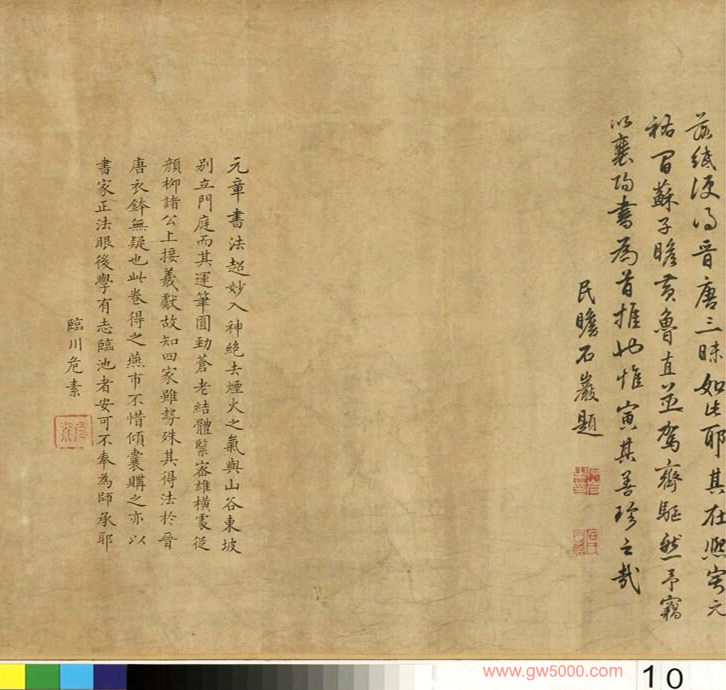 兹纸便得晋唐三昧如此耶其在熙寧元
祐間蘇子瞻黄魯直並駕齊驅然予竊
以襄陽書為首推也惟寅其善珍之哉
民瞻石巖題
元章書法超妙入神絶去煙火之氣與山谷東坡
别立門庭而其運筆圓勁蒼老結體緊密雄横實從
顔柳諸公上接羲獻故知四家雖勢殊其得法於晉
唐衣鉢無疑也此卷得之燕市不惜傾囊購之亦以
書家正法眼後學有志臨池者安可不奉為師承耶
臨川危素
www.gw5000.com
10